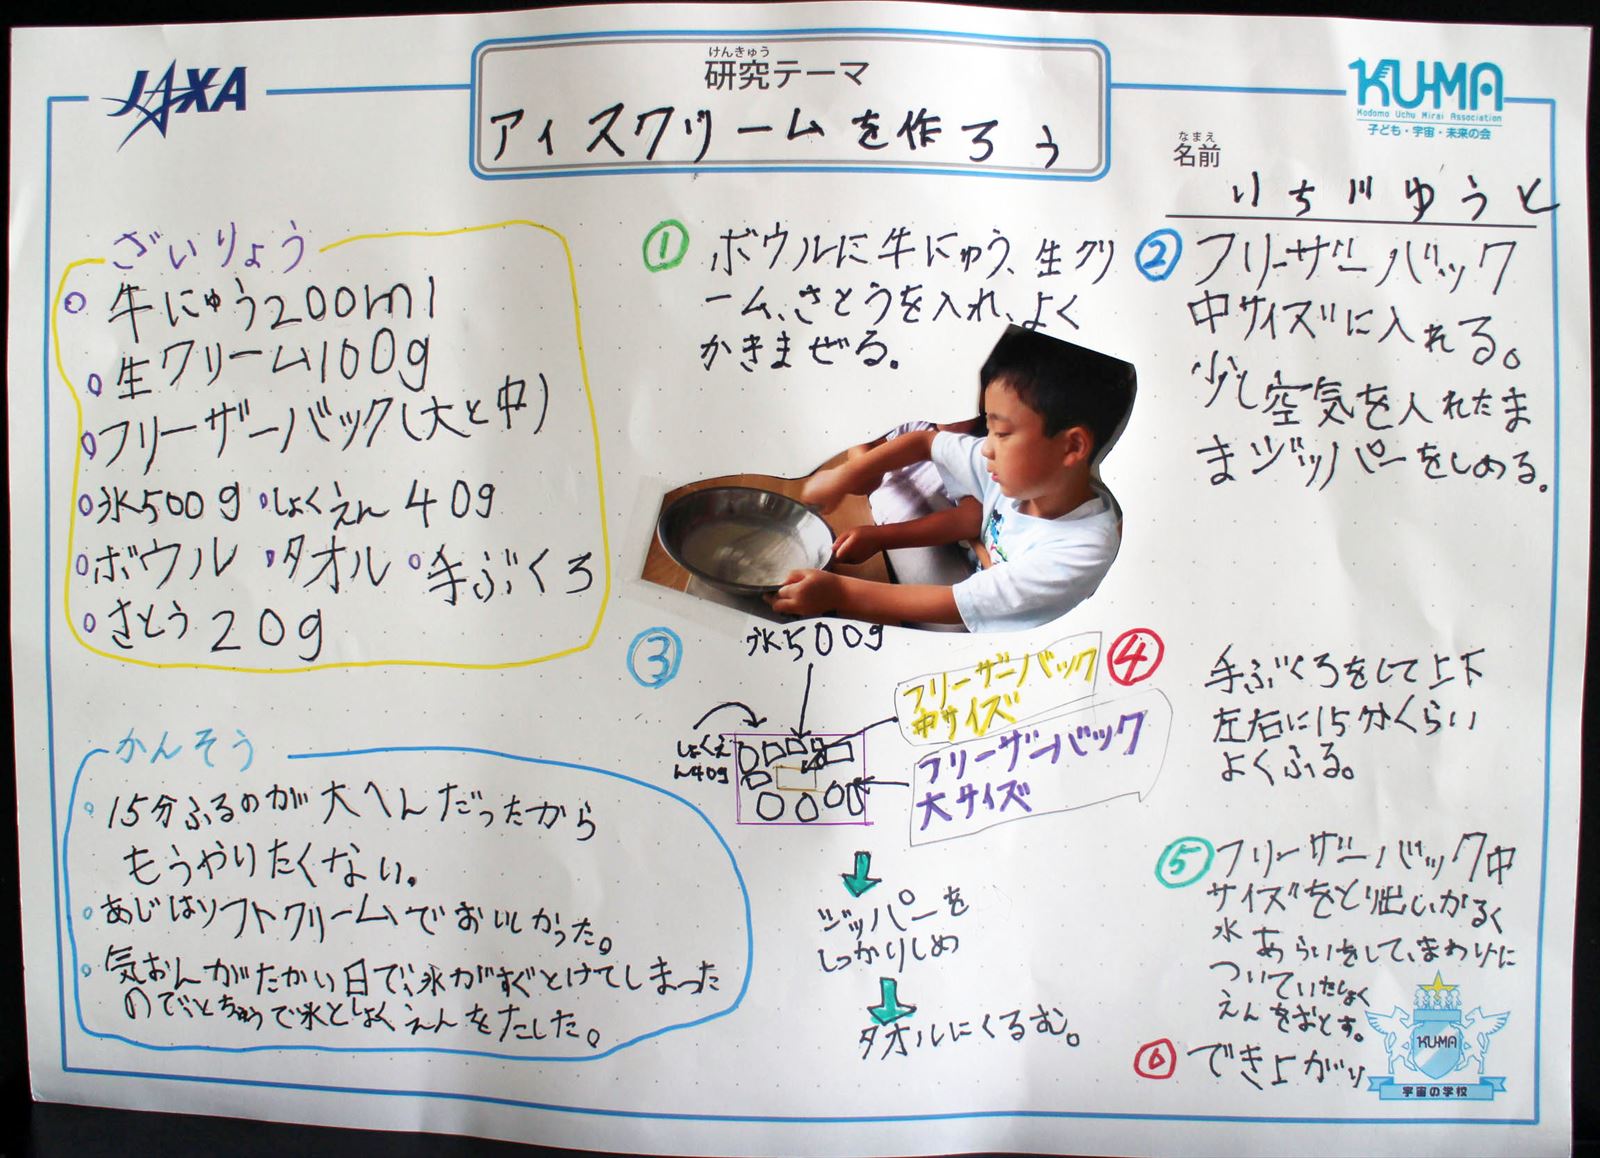 JAXA
けんきゅう
研究テーマ
アイスクリームを作ろう
KU-MA
Kodomo Uchu Mirai Association
子ども・宇宙・未来の会
なまえ
名前
いちりゅうと
ざいりょう
牛にゅう200ml
生クリーム100g
フリーザーバック(大と中)
氷500g・しょくえん 40g
ボウル ・タオル ・手ぶくろ
さとう 20g
かんそう
15分ふるのが大へんだったから
もうやりたくない。
あじはソフトクリームでおいしかった。
気おんがたかい日で、氷がすぐとけてしまった
ので、とちゅうで氷としょくえんをたした。
① ボウルに牛にゅう、生クリ
ーム、さとうを入れ、よく
かきまぜる。
② フリーザーバック
中サイズに入れる。
少し空気を入れたま
まジッパーをしめる。
③
氷500g
しょくえ
ん40g
フリーザーバック
中サイズ
フリーザーバック
大サイズ
ジッパーを
しっかりしめ
タオルにくるむ。
④
手ぶくろをして上下
左右に15分くらい
よくふる。
⑤ フリーザーバック中
サイズをとり出しかるく
水あらいをして、まわりに
ついていたしょく
えんをおとす。
⑥ できよがり
KU-MA
宇宙の学校